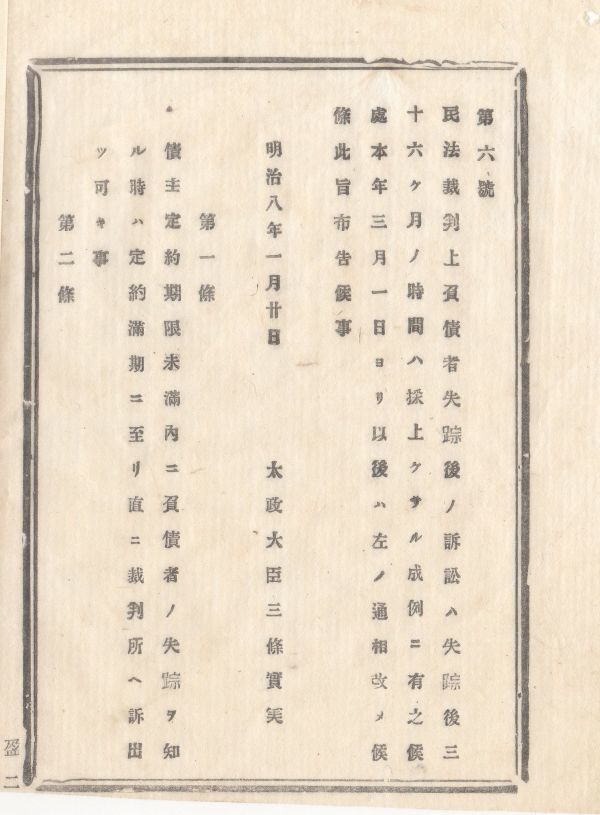 第六號
民法裁判上負債者失踪後ノ訴訟ハ失踪後三
十六ケ月ノ時間ハ採上ケサル成例ニ有之候
處本年三月一日ヨリ以後ハ左ノ通相改メ候
條此旨布告候事
明治八年一月廿日　太政大臣三條實美
第一條
債主定約期限未滿內ニ負債者ノ失踪ヲ知
ル時ハ定約滿期ニ至リ直ニ裁判所ヘ訴出
ツ可キ事
第二條
二